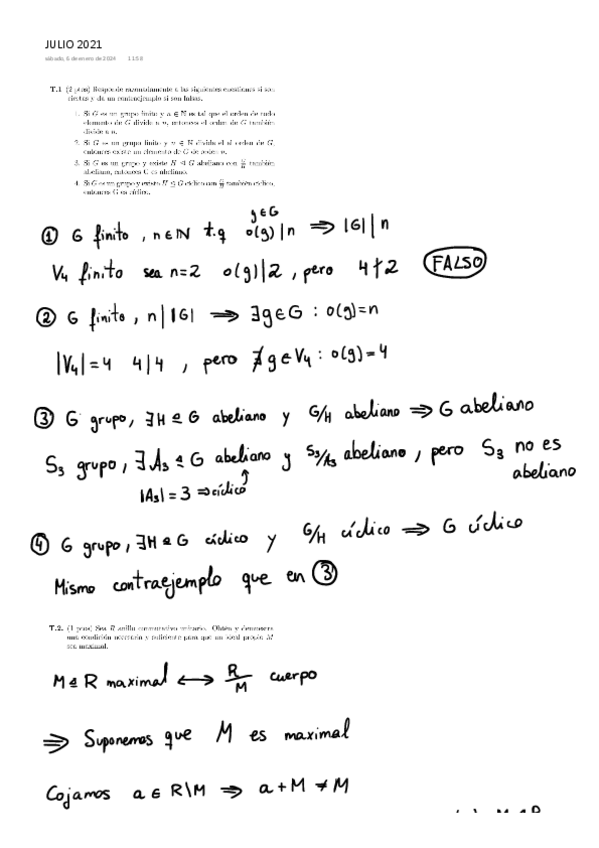 JULIO 2021
sábado, 6 de enero de 2024 11:58
T.1 (2 ptos) Responde razonadamente a las siguientes cuestiones si son
ciertas y da un contraejemplo si son falsas.
1. Si G es un grupo finito y n ∈ ℕ es tal que el orden de cada
elemento de G divide a n, entonces el orden de G también
divide a n.
2. Si G es un grupo finito y n ∈ ℕ divide al orden de G,
entonces existe un elemento de G de orden n.
3. Si G es un grupo y existe H ⊴ G abeliano con G/H también
abeliano, entonces G es abeliano.
4. Si G es un grupo y existe H ⊴ G cíclico con G/H también cíclico,
entonces G es cíclico.
① G finito, n∈ℕ t.q g∈G o(g)|n ⇒ |G||n
V₄ finito sea n=2 o(g)|2, pero 4∤2 FALSO
② G finito, n||G| ⇒ ∃g∈G : o(g)=n
|V₄|=4 4|4 , pero ∄g∈V₄ : o(g)=4
③ G grupo, ∃H ⊴ G abeliano y G/H abeliano ⇒ G abeliano
S₃ grupo, ∃A₃ ⊴ G abeliano y S₃/A₃ abeliano, pero S₃ no es
abeliano
|A₃|=3 ⇒ cíclico ↑
④ G grupo, ∃H ⊴ G cíclico y G/H cíclico ⇒ G cíclico
Mismo contraejemplo que en ③
T.2. (1 ptos) Sea R anillo conmutativo unitario. Obtén y demuestra
una condición necesaria y suficiente para que un ideal propio M
sea maximal.
M ⊴ R maximal ⟷ R/M cuerpo
⇒ Suponemos que M es maximal
Cojamos a ∈ R\M ⇒ a+M ≠ M